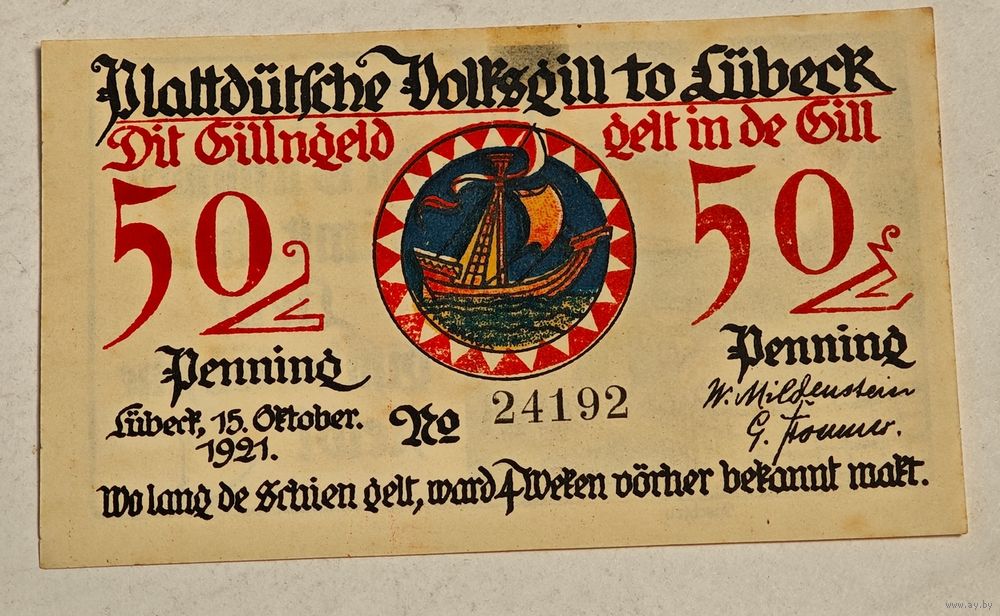 Plattdütsche Volksgill to Lübeck
Dit Gillngeld gelt in de Gill
50 50
Penning Penning
Lübeck, 15. Oktober. 1921.
No 24192
W. Mildenstein
G.
Wo lang de Schien gelt, ward 4 Weken vörher bekannt makt.
www.ay.by